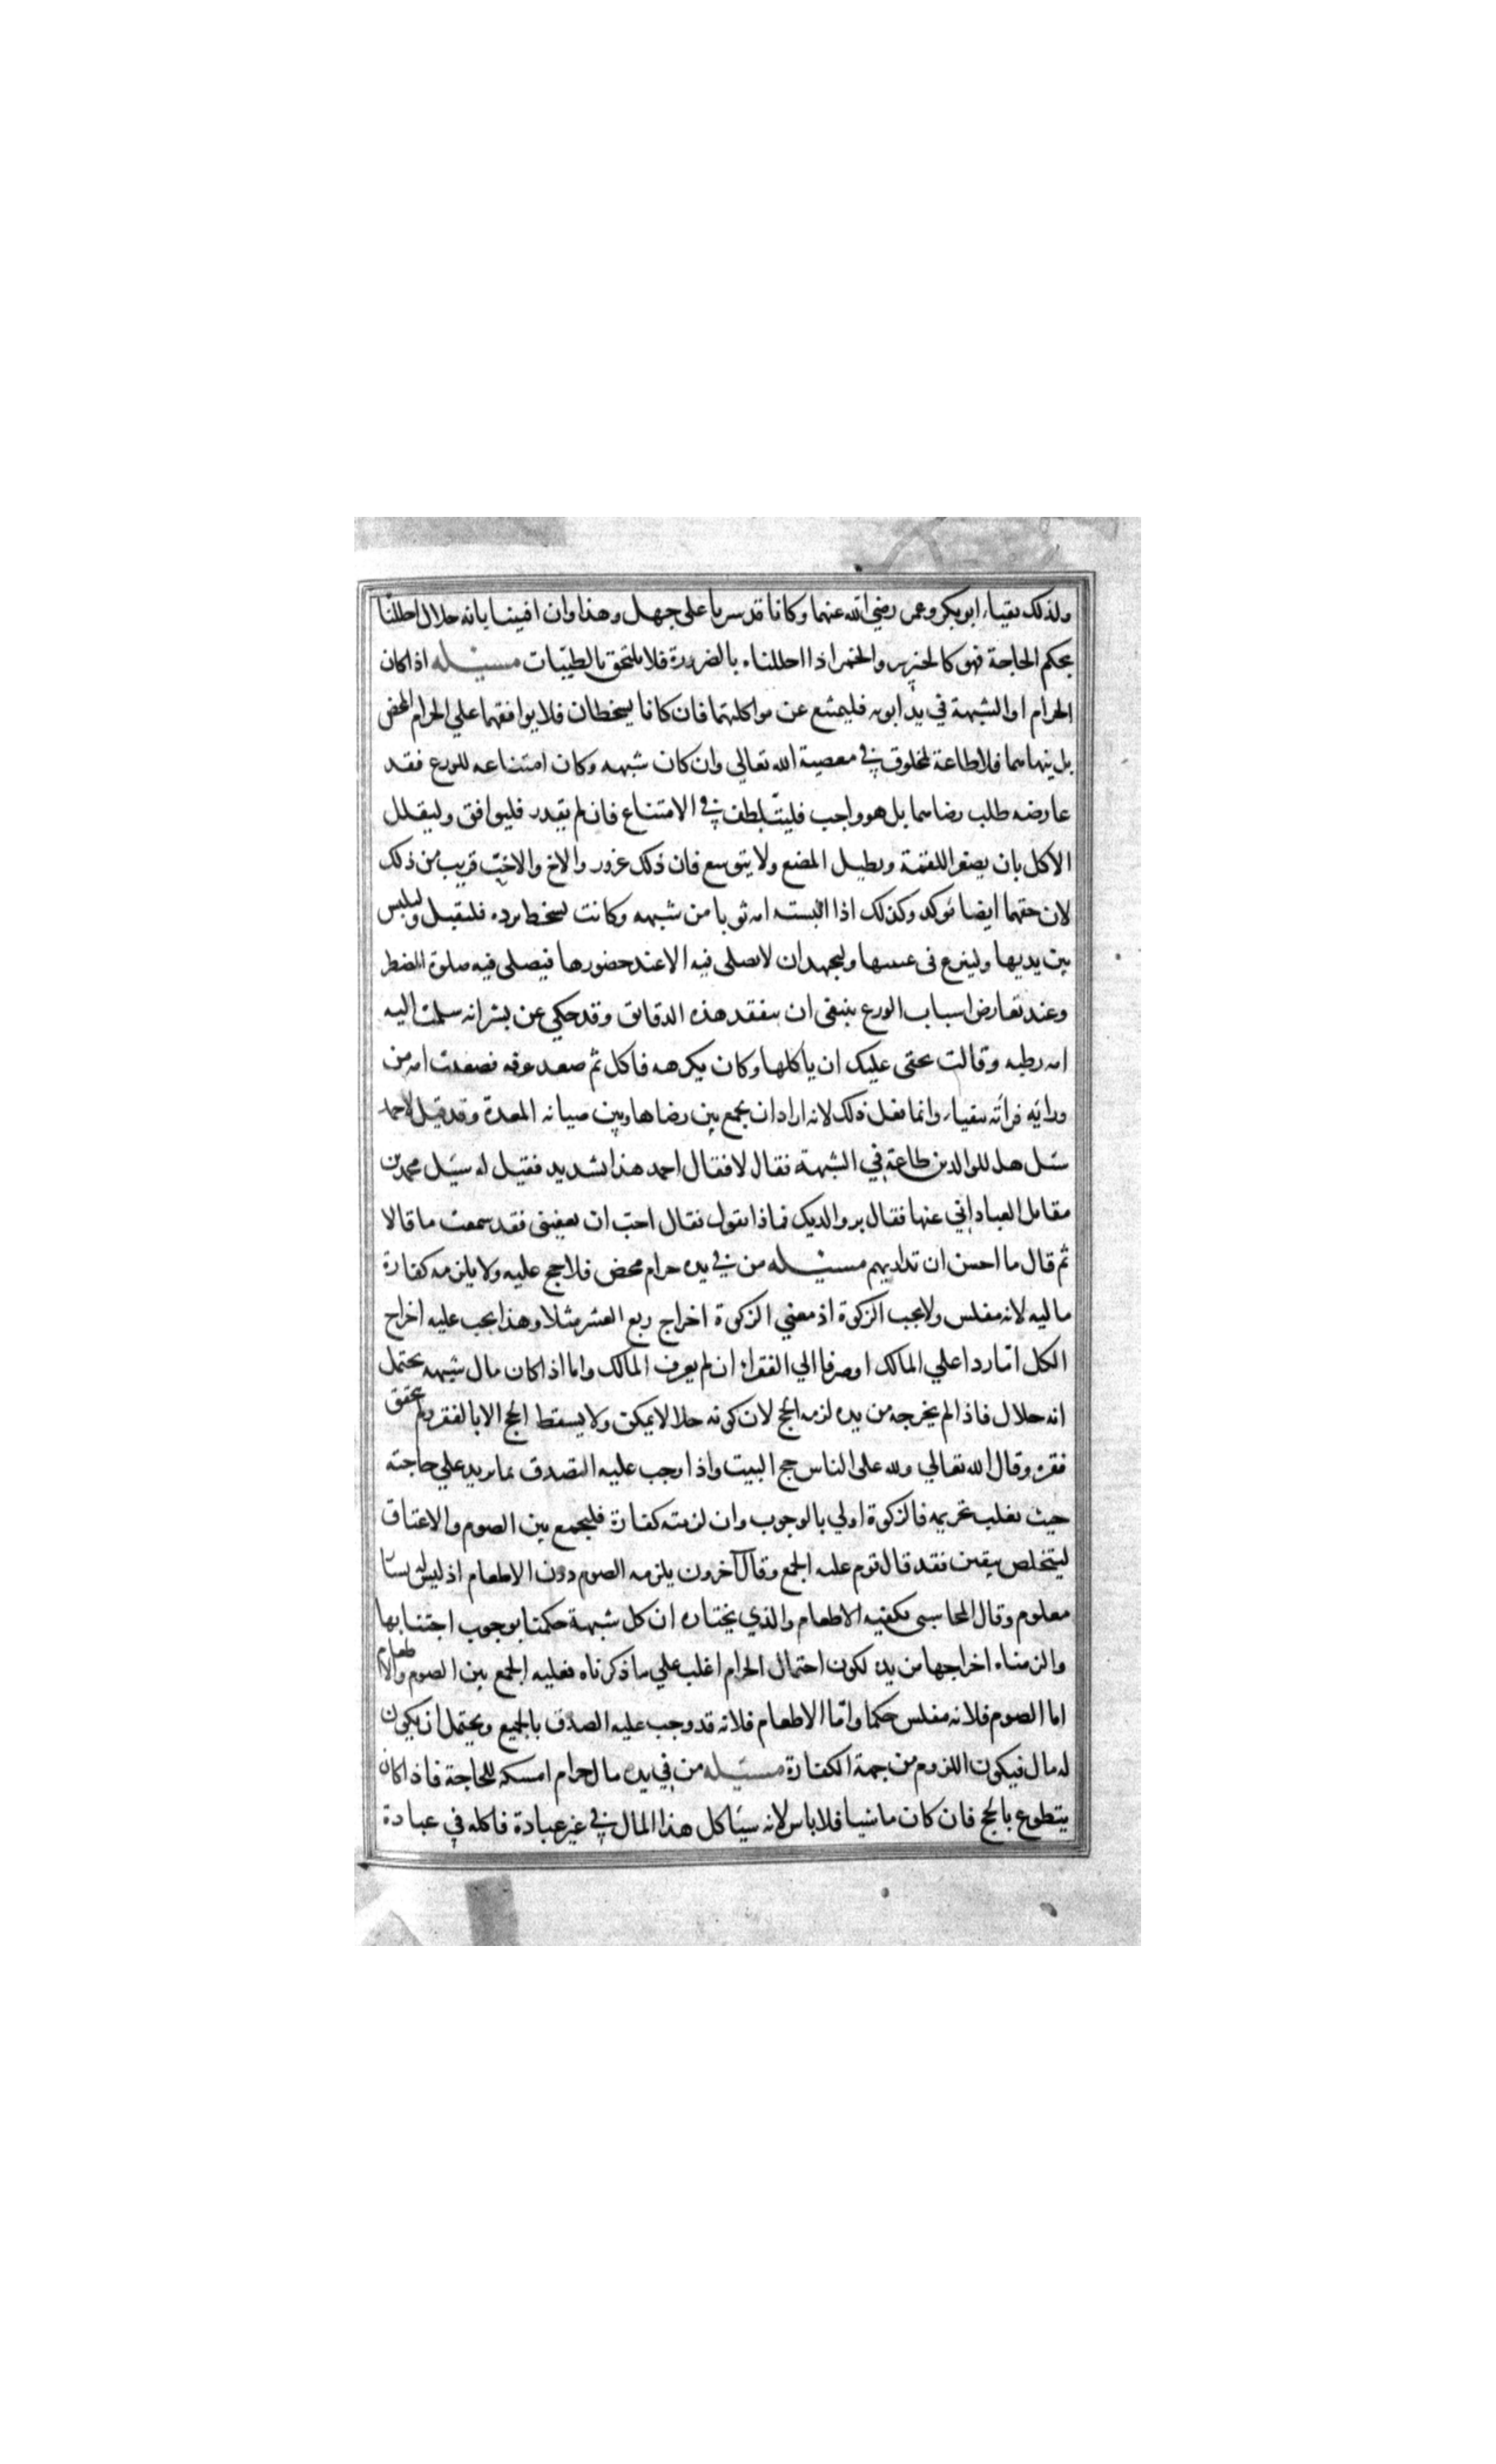 ولذلك تقيا ابوبكر وعمر رضي الله عنهما وكانا قد سربا على جهل وهذا وان افتينا بانه حلال احللنا
بحكم الحاجة فهو كالخنزير والخمر اذا احللناه بالضرورة فلا يلتحق بالطيبات مسئله اذا كان
الحرام او الشبهة في يد ابويه فليمتنع عن مواكلتهما فان كانا يسخطان فلا يوافقهما علي الحرام المحض
بل ينهاهما فلا طاعة لمخلوق في معصية الله تعالي وان كان شبهه وكان امتناعه للورع فقد
عارضه طلب رضاهما بل هو واجب فليتلطف في الامتناع فان لم يقدر فليوافق وليقلل
الاكل بان يصغر اللقمة ويطيل المضغ ولا يتوسع فان ذلك غرور والاخ والاخت قريب من ذلك
لان حقهما ايضا موكد وكذلك اذا البسته امه ثوبا من شبهه وكانت تسخط برده فليقبل وليلبس
بين يديها ولينزع في غيبتها وليجهد ان لا يصلي فيه الا عند حضورها فيصلي فيه صلوة المضطر
وعند تعارض اسباب الورع ينبغي ان يتفقد هذه الدقائق وقد حكي عن بشر انه سلمت اليه
امه رطبه وقالت بحقي عليك ان ياكلها وكان يكرهه فاكل ثم صعد غرفه فصعدت امه من
ورائه فرأته يتقيا وانما فعل ذلك لانه اراد ان يجمع بين رضاها وبين صيانه المعدة وقد قيل لاحمد
سئل هل للوالدين طاعة في الشبهة فقال لا فقال احمد هذا شديد فقيل له سئل محمد بن
مقاتل العباداني عنها فقال بر والديك فماذا تقول فقال احب ان تعفيني فقد سمعت ما قالا
ثم قال ما احسن ان تداريهم مسئله من في يده حرام محض فلا حج عليه ولا يلزمه كفارة
ماليه لانه مفلس ولا يجب الزكوة اذ معني الزكوة اخراج ربع العشر مثلا وهذا يجب عليه اخراج
الكل امّا ردا علي المالك او صرفا الي الفقراء ان لم يعرف المالك واما اذا كان مال شبهه يحتمل
انه حلال فاذا لم يخرجه من يده لزمه الحج لان كونه حلالا يمكن ولا يسقط الحج الا بالفقر ولم يتحقق
فقره وقال الله تعالي ولله على الناس حج البيت واذا وجب عليه التصدق بما يريد علي حاجته
حيث يغلب تحريمه فالزكوة اولي بالوجوب وان لزمته كفارة فليجمع بين الصوم والاعتاق
ليتخلص بيقين فقد قال قوم عليه الجمع وقال آخرون يلزمه الصوم دون الاطعام اذ ليس له يسار
معلوم وقال المحاسبي يكفيه الاطعام والذي يختاره ان كل شبهة حكمنا بوجوب اجتنابها
والزمناه اخراجها من يده لكون احتمال الحرام اغلب علي ما ذكرناه فعليه الجمع بين الصوم والاطعام
اما الصوم فلانه مفلس حكما وامّا الاطعام فلانه قد وجب عليه الصدق بالجميع ويحتمل ان يكون
له مال فيكون اللزوم من جهة الكفارة مسئله من في يده مال حرام امسكه للحاجة فاذا كان
يتطوع بالحج فان كان ماشيا فلا باس لانه سيأكل هذا المال في غير عبادة فاكله في عبادة